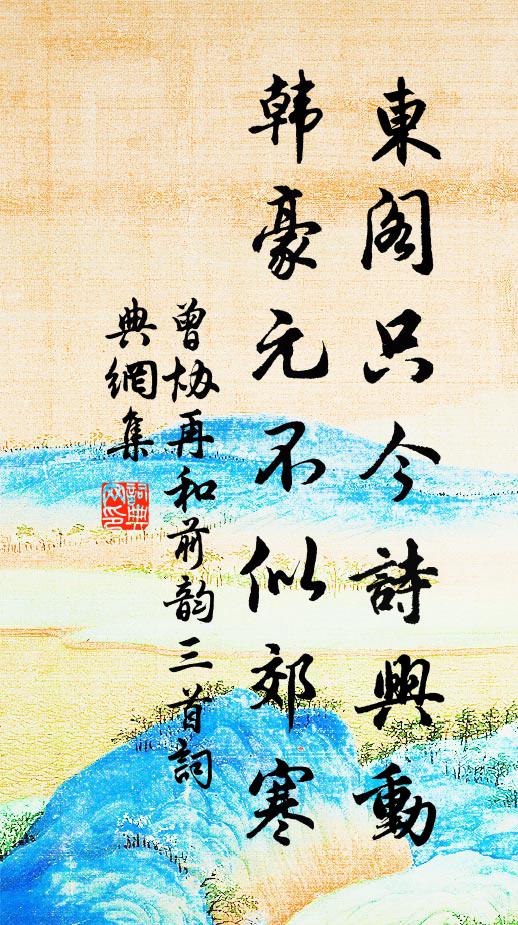 東阁只今詩興動
韩豪元不似郊寒
曾协再和前韵三首詞
典網集
詞典網印